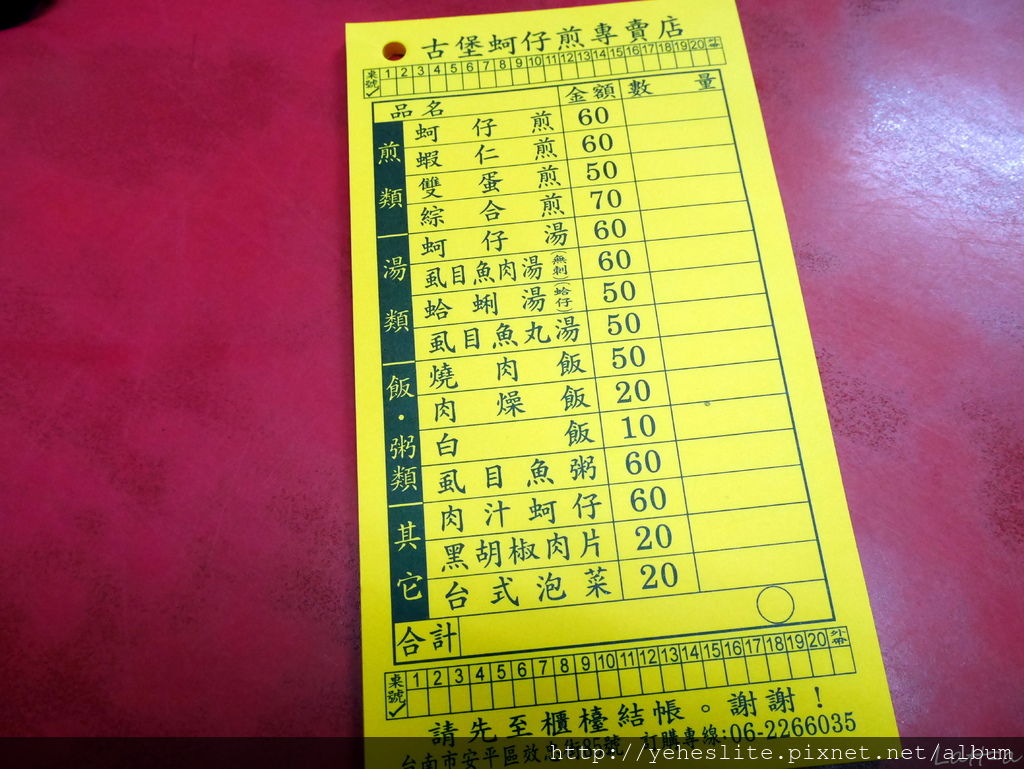 古堡蚵仔煎專賣店
桌號 1 2 3 4 5 6 7 8 9 10 11 12 13 14 15 16 17 18 19 20 外帶
品名 金額 數量
煎類
蚵仔煎 60
蝦仁煎 60
雙蛋煎 50
綜合煎 70
湯類
蚵仔湯 60
虱目魚肉湯(無刺) 60
蛤蜊湯(蛤仔) 50
虱目魚丸湯 50
飯・粥類
燒肉飯 50
肉燥飯 20
白飯 10
虱目魚粥 60
其它
肉汁蚵仔 60
黑胡椒肉片 20
台式泡菜 20
合計
桌號 1 2 3 4 5 6 7 8 9 10 11 12 13 14 15 16 17 18 19 20 外帶
請先至櫃檯結帳。謝謝！
台南市安平區效忠街85號 訂購專線:06-2266035
http://yeheslite.pixnet.net/album